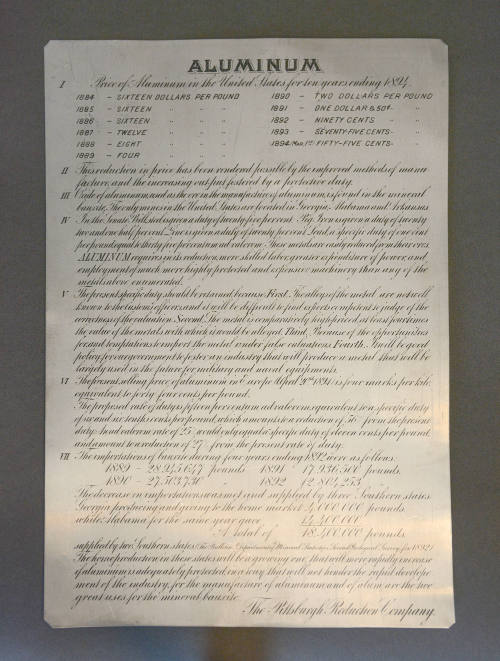 ALUMINUM
I Price of Aluminum in the United States for ten years ending 1894.
1884 – SIXTEEN DOLLARS PER POUND 1890 – TWO DOLLARS PER POUND
1885 – SIXTEEN " " " 1891 – ONE DOLLAR & 50¢ " "
1886 – SIXTEEN " " " 1892 – NINETY CENTS " "
1887 – TWELVE " " " 1893 – SEVENTY-FIVE CENTS " "
1888 – EIGHT " " " 1894 Mar. 1st FIFTY-FIVE CENTS " "
1889 – FOUR " " "
II This reduction in price has been rendered possible by the improved methods of manu-
facture, and the increasing output fostered by a protective duty.
III Ore of aluminum, and as the ore in the manufacture of aluminum, is found in the mineral
bauxite. The only mines in the United States are located in Georgia, Alabama and Arkansas.
IV In the Senate Bill, lead is given a duty of twenty five percent. Pig Iron is given a duty of twenty
two and one half percent. Zinc is given a duty of twenty percent. Lead a specific duty of one cent
per pound equal to thirty five percentum ad valorem. These metals are easily reduced from their ores.
ALUMINUM requires in its reduction, more skilled labor, greater expenditure of power, and
employment of much more highly protected and expensive machinery than any of the
metals above enumerated.
V The present specific duty should be retained because First. The alloys of the metal are not well
known to the customs officers, and it will be difficult to find experts competent to judge of the
correctness of the valuation. Second. The metal is comparatively high priced, at least four times
the value of the metals with which it would be alloyed. Third. Because of the opportunities
for and temptations to import the metal under false valuations. Fourth. It will be good
policy for our government to foster an industry that will produce a metal that will be
largely used in the future for military and naval equipments.
VI The present selling price of aluminum in Europe April 1894, is four marks per kilo,
equivalent to forty four cents per pound.
The proposed rate of duty is fifteen percentum ad valorem, equivalent to a specific duty
of six and six tenths cents per pound, which amounts to a reduction of 56% from the present
duty. An ad valorem rate of 25% would only equal a specific duty of eleven cents per pound,
and amount to a reduction of 27% from the present rate of duty.
VII The importations of bauxite during four years ending 1892 were as follows:
1889 – 28,945,647 pounds 1891 17,936,500 pounds.
1890 – 27,503,730 " 1892 12,804,253 "
The decrease in importation was met and supplied by three Southern states
Georgia producing and giving to the home market 4,000,000 pounds.
while Alabama for the same year gave 14,400,000 "
A total of 18,400,000 pounds
supplied by two Southern states
The home production in these states will be a growing one, that will more rapidly increase
if aluminum is adequately protected in a way that will not hinder the rapid develope
ment of the industry, for the manufacture of aluminum and of alum are the two
great uses for the mineral bauxite.
The Pittsburgh Reduction Company.